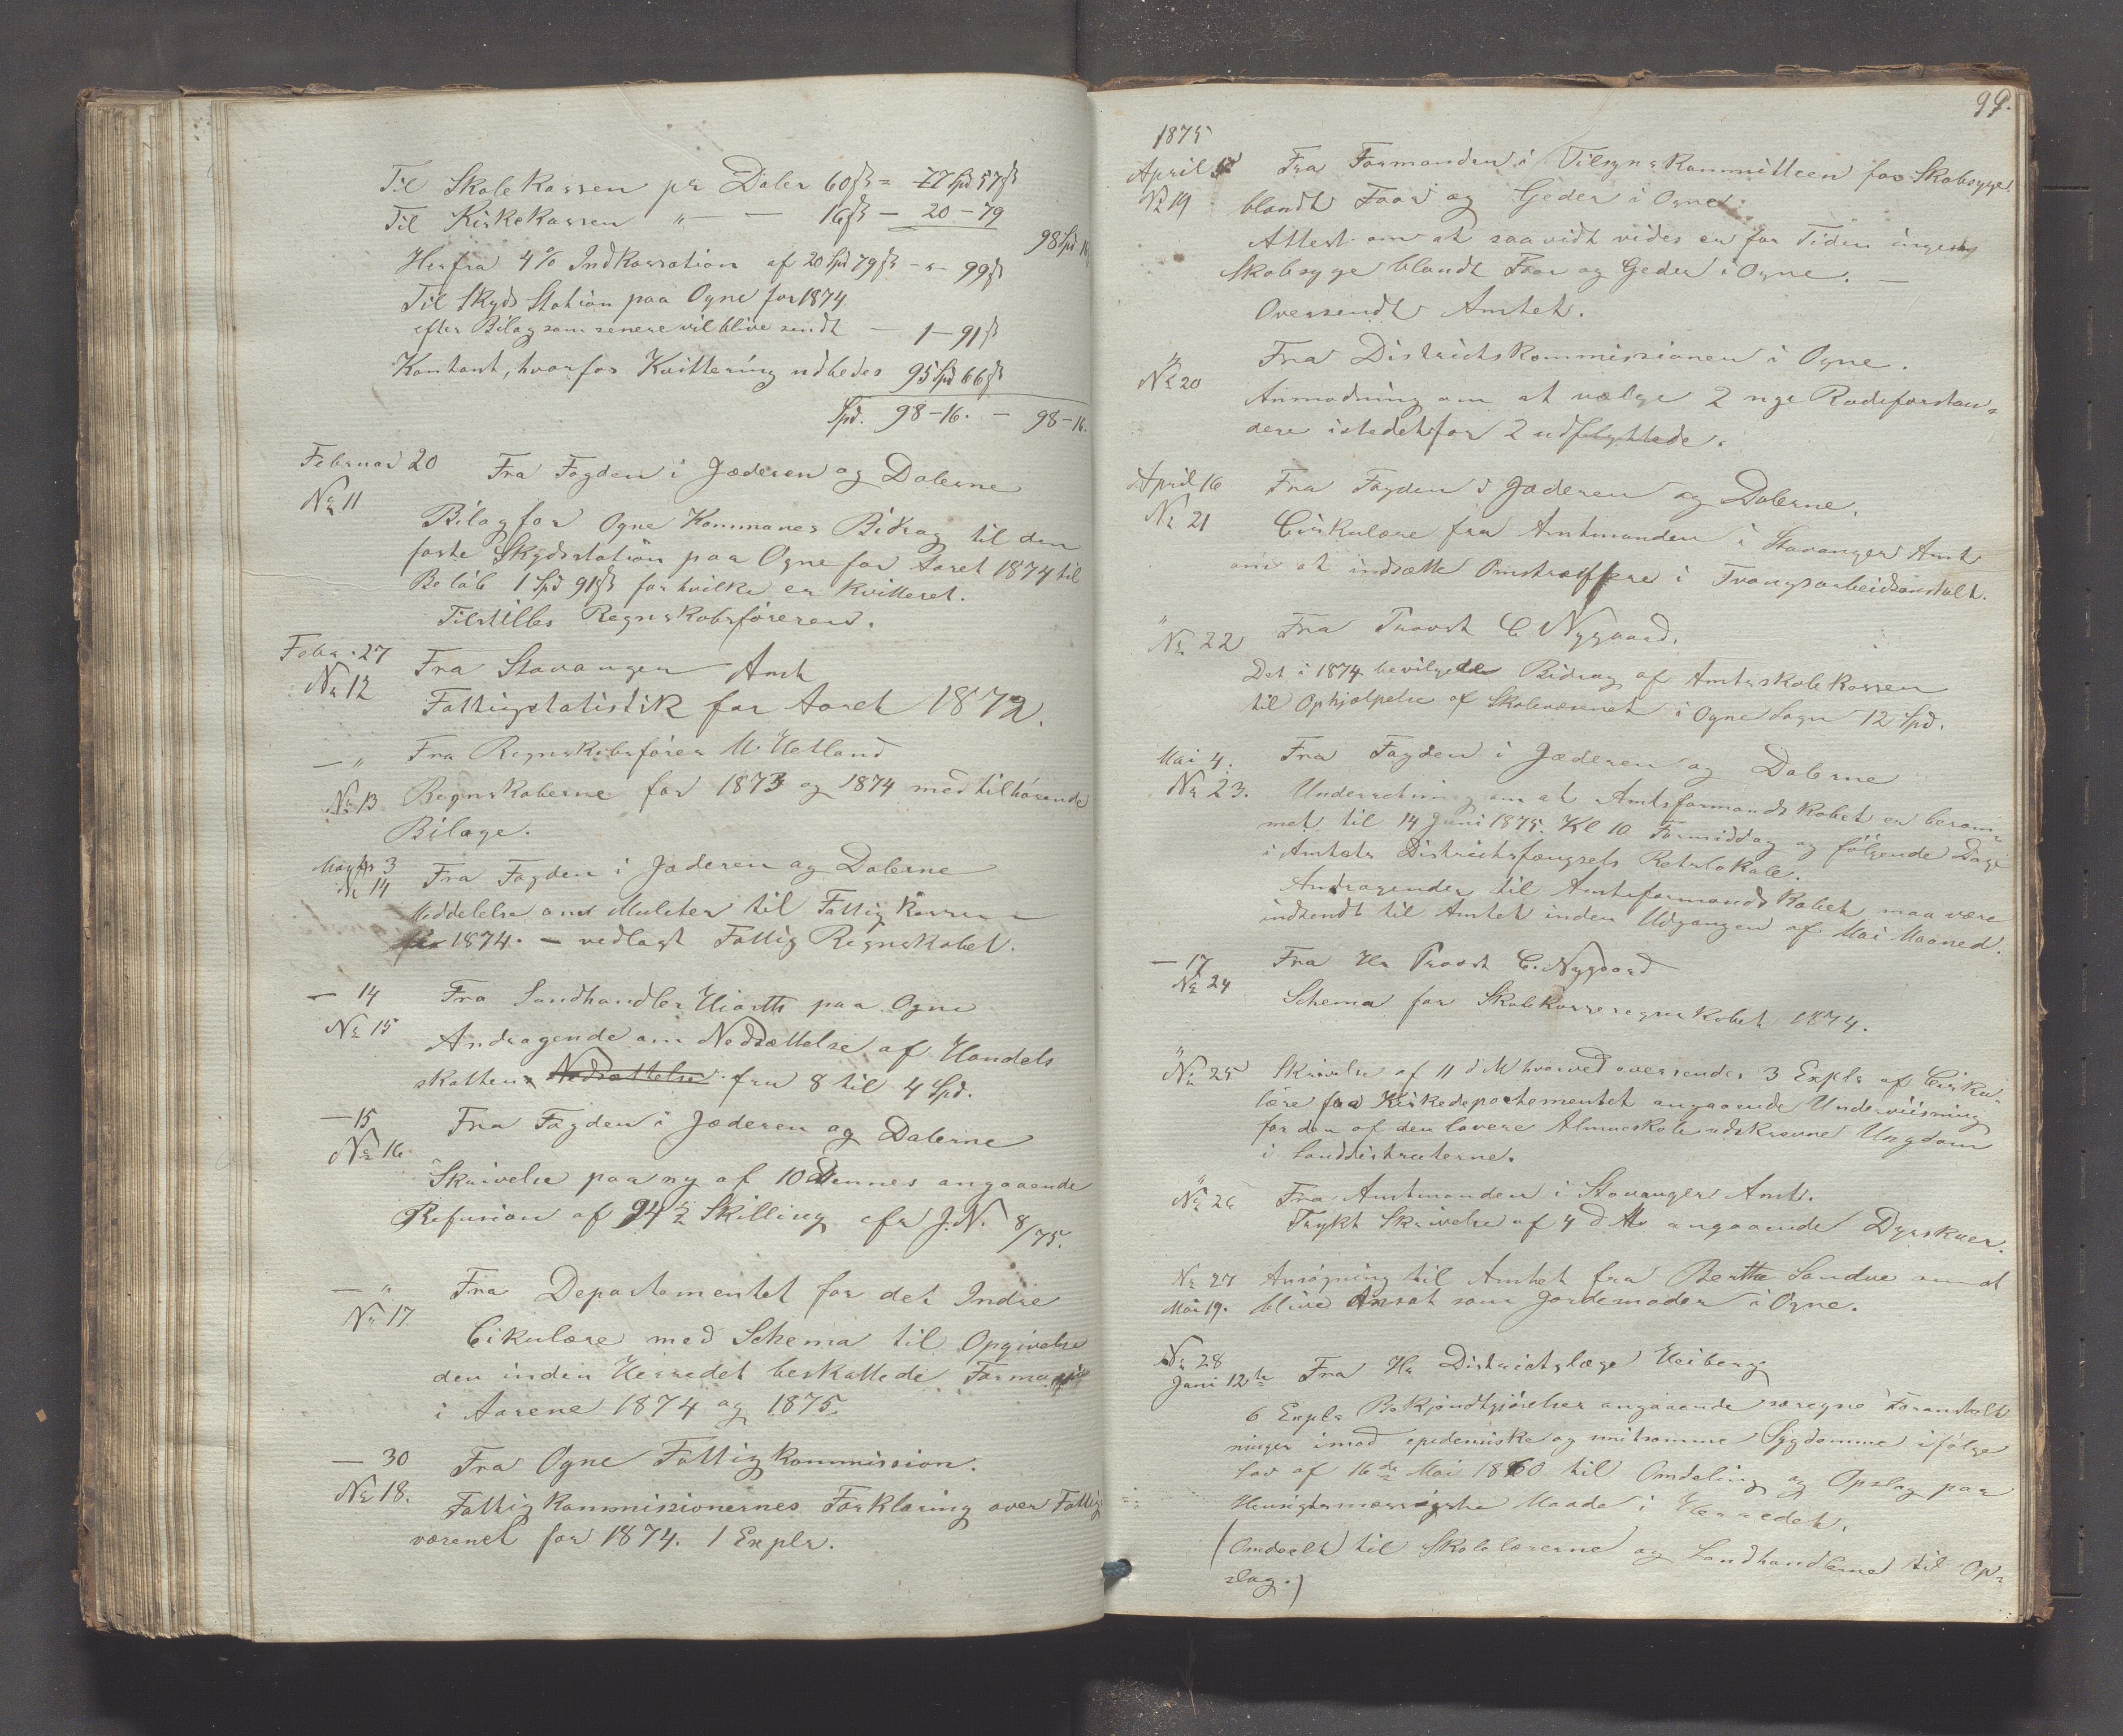 Til Skolekassen pr Daler 60 ß = 77 Spd 57 ß
Til Kirkekassen " — — 16 ß — 20 - 79
98 Spd 16
Herfra 4 % Indkassation af 20 Spd 79 ß - " - 99 ß
Til Skyds Station paa Ogne for 1874
efter Bilag som senere vil blive sendt — 1 - 91 ß
Kontant, hvorfor Kvittering udbedes 95 Spd 66 ß
Spd. 98 - 16. — 98 - 16.
Februar 20 Fra Fogden i Jæderen og Dalerne
No 11
Bilag for Ogne Kommunes Bidrag til den
faste Skydsstation paa Ogne for Aaret 1874 til
Beløb 1 Spd 91 ß for hvilke er kvitteret.
Tilstilles Regnskabsføreren.
Febr. 27 Fra Stavanger Amt
No 12
Fattigstatistik for Aaret 1872.
— " Fra Regnskabsfører M. Hetland
No 13 Regnskaberne for 1873 og 1874 med tilhørende
Bilage.
Marts 3 Fra Fogden i Jæderen og Dalerne
No 14
Meddelelse om Mulcter til Fattigkassen
for 1874. — vedlagt Fattig Regnskabet.
— 14 Fra Landhandler Hiorth paa Ogne
No 15
Andragende om Nedsættelse af Handels
skatten Nedsættelse fra 8 til 4 Spd.
— 15 Fra Fogden i Jæderen og Dalerne
No 16
Skrivelse paa ny af 10 dennes angaaende
Refusion af 94 ½ Skilling cfr J.N. 8/75.
— " Fra Departementet for det Indre
No 17.
Cikulære med Schema til Opgivelse
den inden Herredet beskattede Formue
i Aarene 1874 og 1875.
— 30 Fra Ogne Fattigkommission.
No 18.
Fattigkommissionernes Forklaring over Fattig
væsenet for 1874. 1 Expl.
99.
1875
April 5 Fra Formanden i Tilsynskommitteen for Skabsyge
No 19 blandt Faar og Geder i Ogne.
Attest om at saavidt vides er for Tiden ingen
Skabsyge blandt Faar og Geder i Ogne. —
Oversendt Amtet.
" Fra Districtskommissionen i Ogne.
No 20
Anmodning om at vælge 2 nye Rodeforstan-
dere istedetfor 2 udflyttede.
April 16 Fra Fogden i Jæderen og Dalerne.
No 21 Cirkulære fra Amtmanden i Stavanger Amt
om at indsætte Omstreiffere i Tvangsarbeidsanstalt.
" Fra Provst C Nygaard.
No 22
Det i 1874 bevilgede Bidrag af Amtsskolekassen
til Ophjælpelse af Skolevæsenet i Ogne Sogn 12 Spd.
Mai 4. Fra Fogden i Jæderen og Dalerne
No 23. Underretning om at Amtsformandskabet er beram-
met til 14 Juni 1875. Kl 10 Formiddag og følgende Dage
i Amtets Distriktsfængsels Retslokale.
Andragender til Amtsformandskabet maa være
indsendt til Amtet inden Udgangen af Mai Maaned.
— 17 Fra Hr Provst C. Nygaard
No 24
Schema for Skolekasseregnskabet 1874.
"
No 25 Skrivelse af 11 d M hvorved oversendes 3 Expls af Cirku-
lære fra Kirkedepartementet angaaende Underviisning
for den af den lavere Almueskole udskrevne Ungdom
i Landdistricterne.
"
No 26 Fra Amtmanden i Stavanger Amt.
Trykt Skrivelse af 4 d M angaaende Dyrskuer.
No 27 Ansøgning til Amtet fra Berthe Sandve om at
Mai 19. blive Ansat som Jordemoder i Ogne.
No 28
Juni 12te Fra Hr Districtslæge Heiberg
6 Expls Bekjendtgjørelser angaaende særegne Foranstalt
ninger imod epidemiske og smitsomme Sygdomme ifølge
Lov af 16de Mai 1860 til Omdeling og Opslag paa
Hensigtsmæssigste Maade i Herredet.
(Omdeelt til Skolelærerne og Landhandlerne til Op-
slag.)